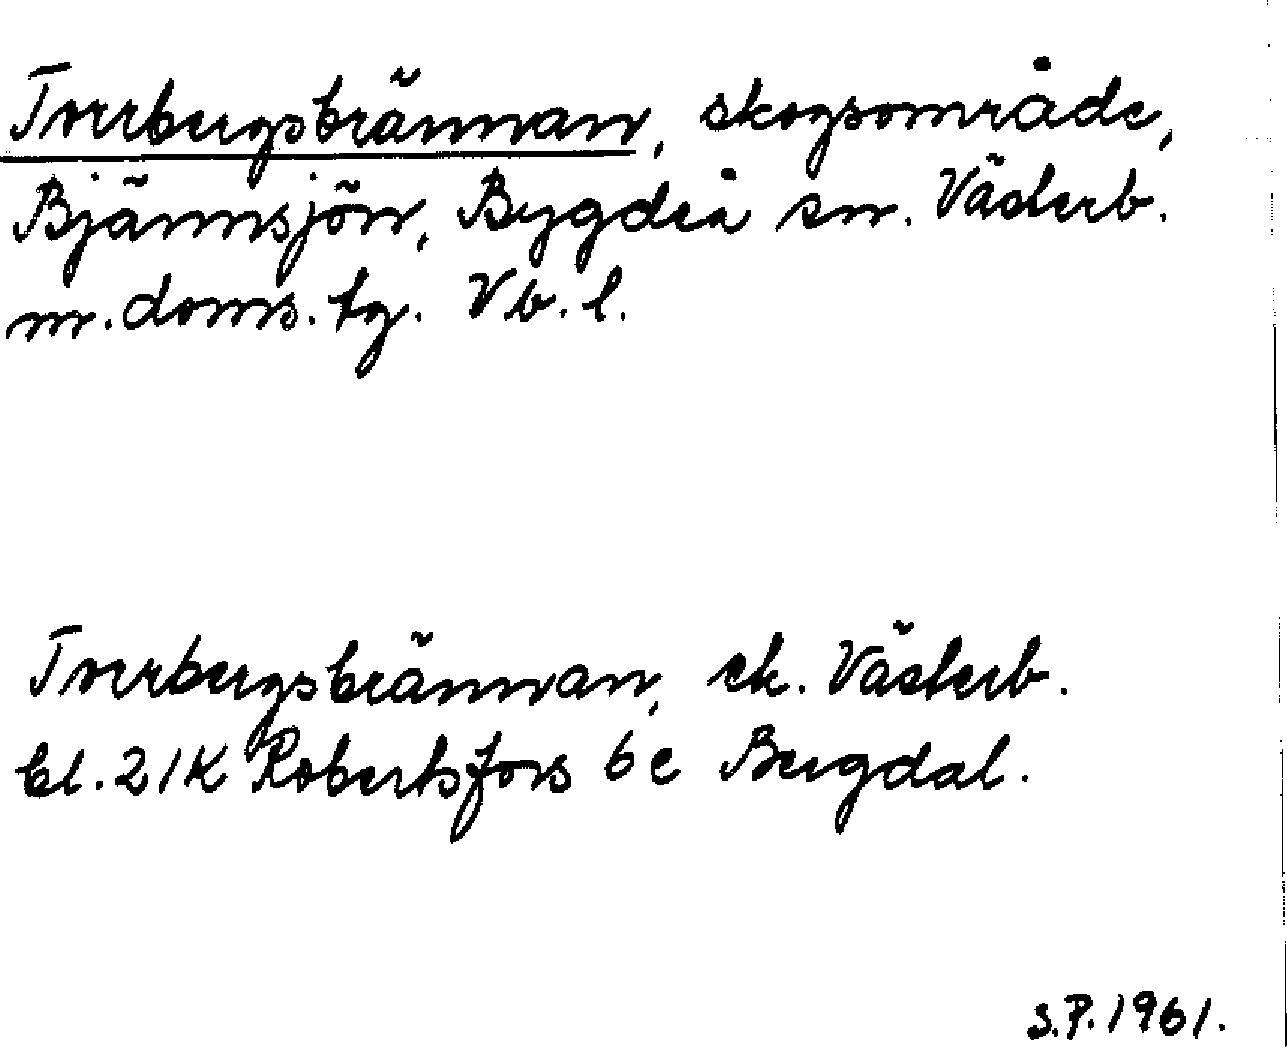 Tverbergsbrännan, skogsområde,
Bjännsjön, Bygdeå sn. Västerb.
m. doms. tg. Vb. l.
Tverbergsbrännan, ek. Västerb.
bl. 21K Robertsfors 6e Bergdal.
S.P. 1961.